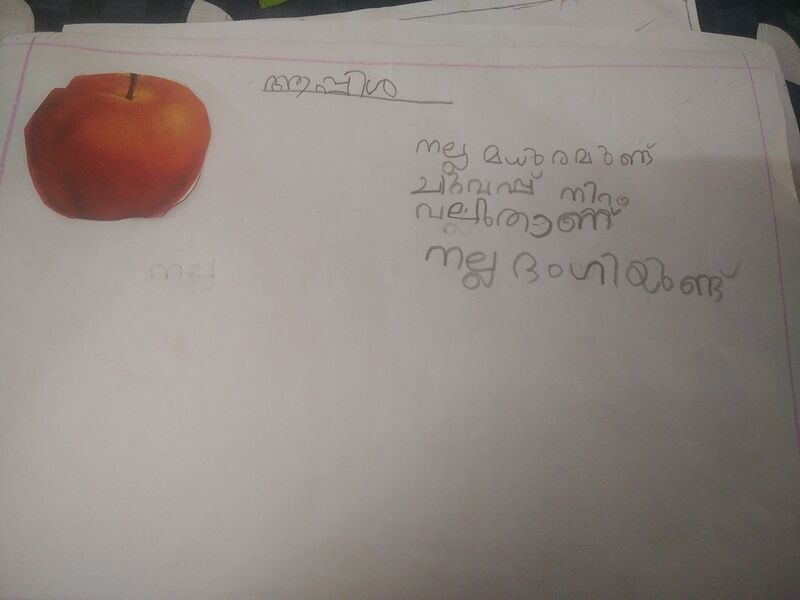 ആപ്പിൾ
നല്ല മധുരമുണ്ട്
ചുവപ്പ് നിറം
വല്ലിതാണ്
നല്ല ദംഗിയുണ്ട്
നല്ല